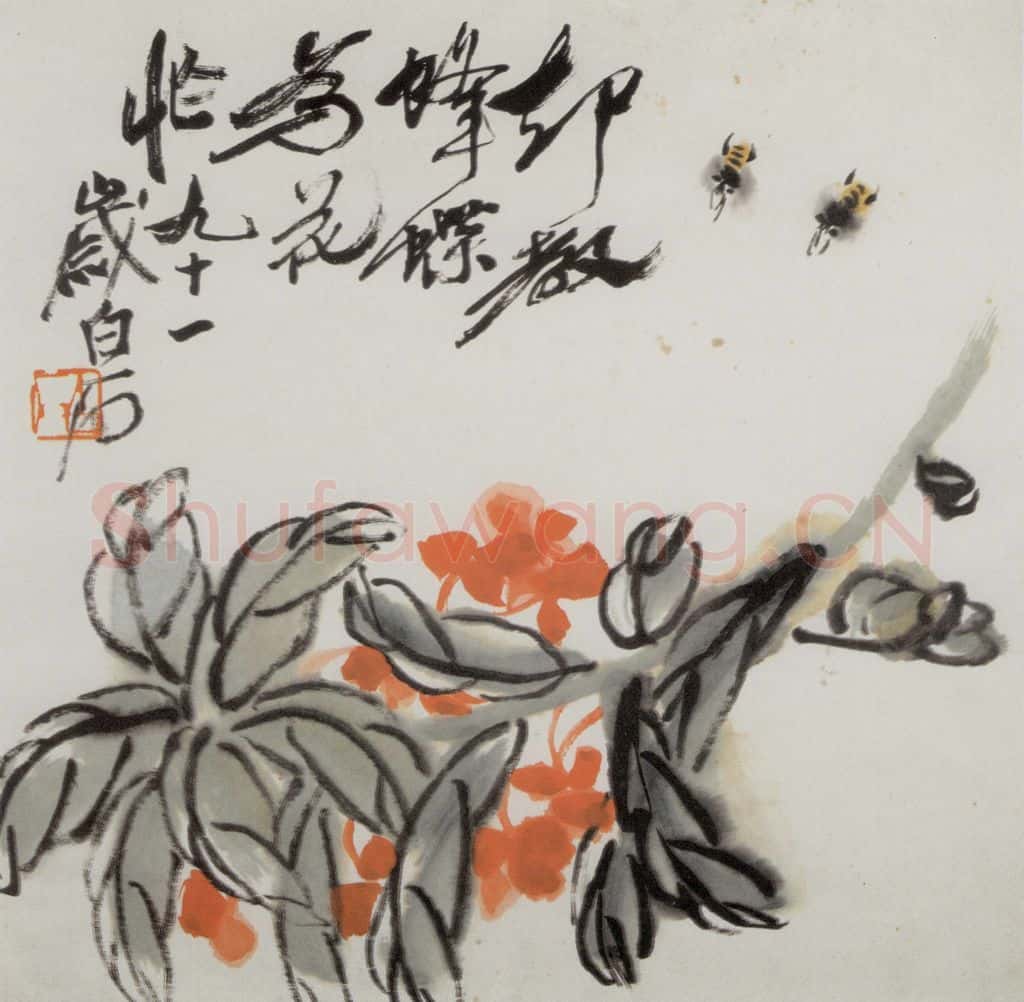 却教
蜂蝶
為花
忙九十一
歲白石
Shufawang.CN